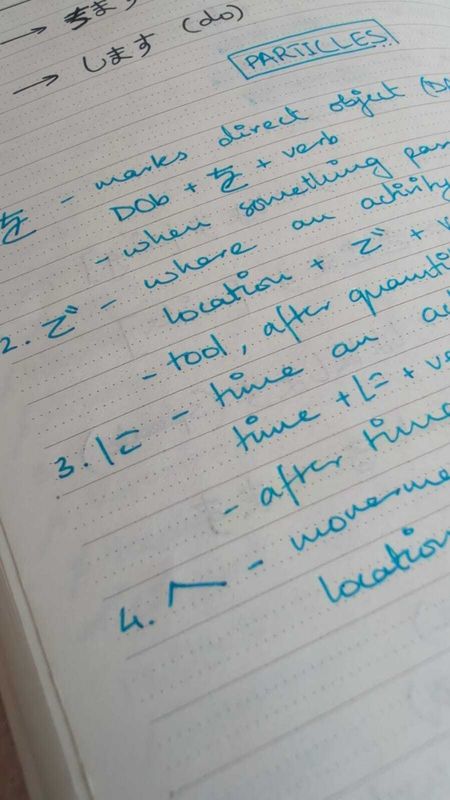 → きます
→ します (do)
PARTICLES
を - marks direct object (D
DOb + を + verb
- when something pas
2. で - where an activity
location + で + v
- tool, after quanti
3. に - time an ac
time + に + ve
- after time
4. へ - moveme
location